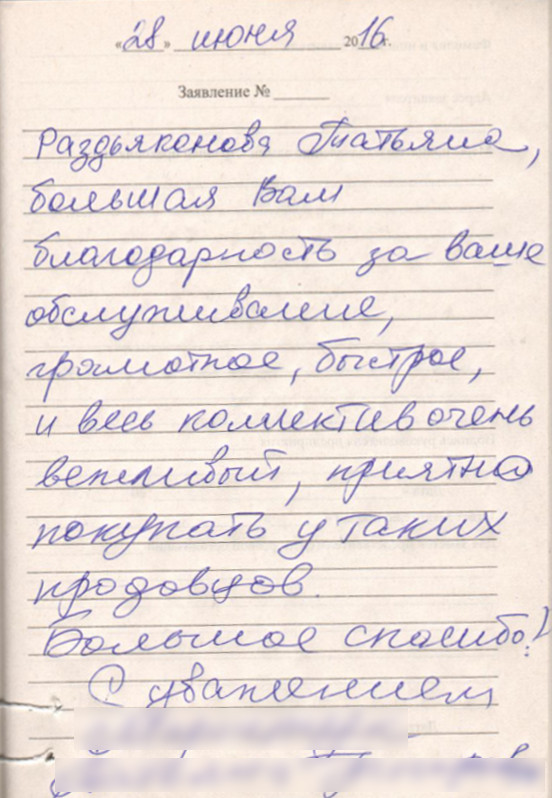 «28» июня 2016г.
Заявление № ______
Раздьяконова Татьяна,
большая Вам
благодарность за ваше
обслуживание,
грамотное, быстрое,
и весь коллектив очень
вежливый, приятно
покупать у таких
продовцов.
Большое спасибо!
С уважением